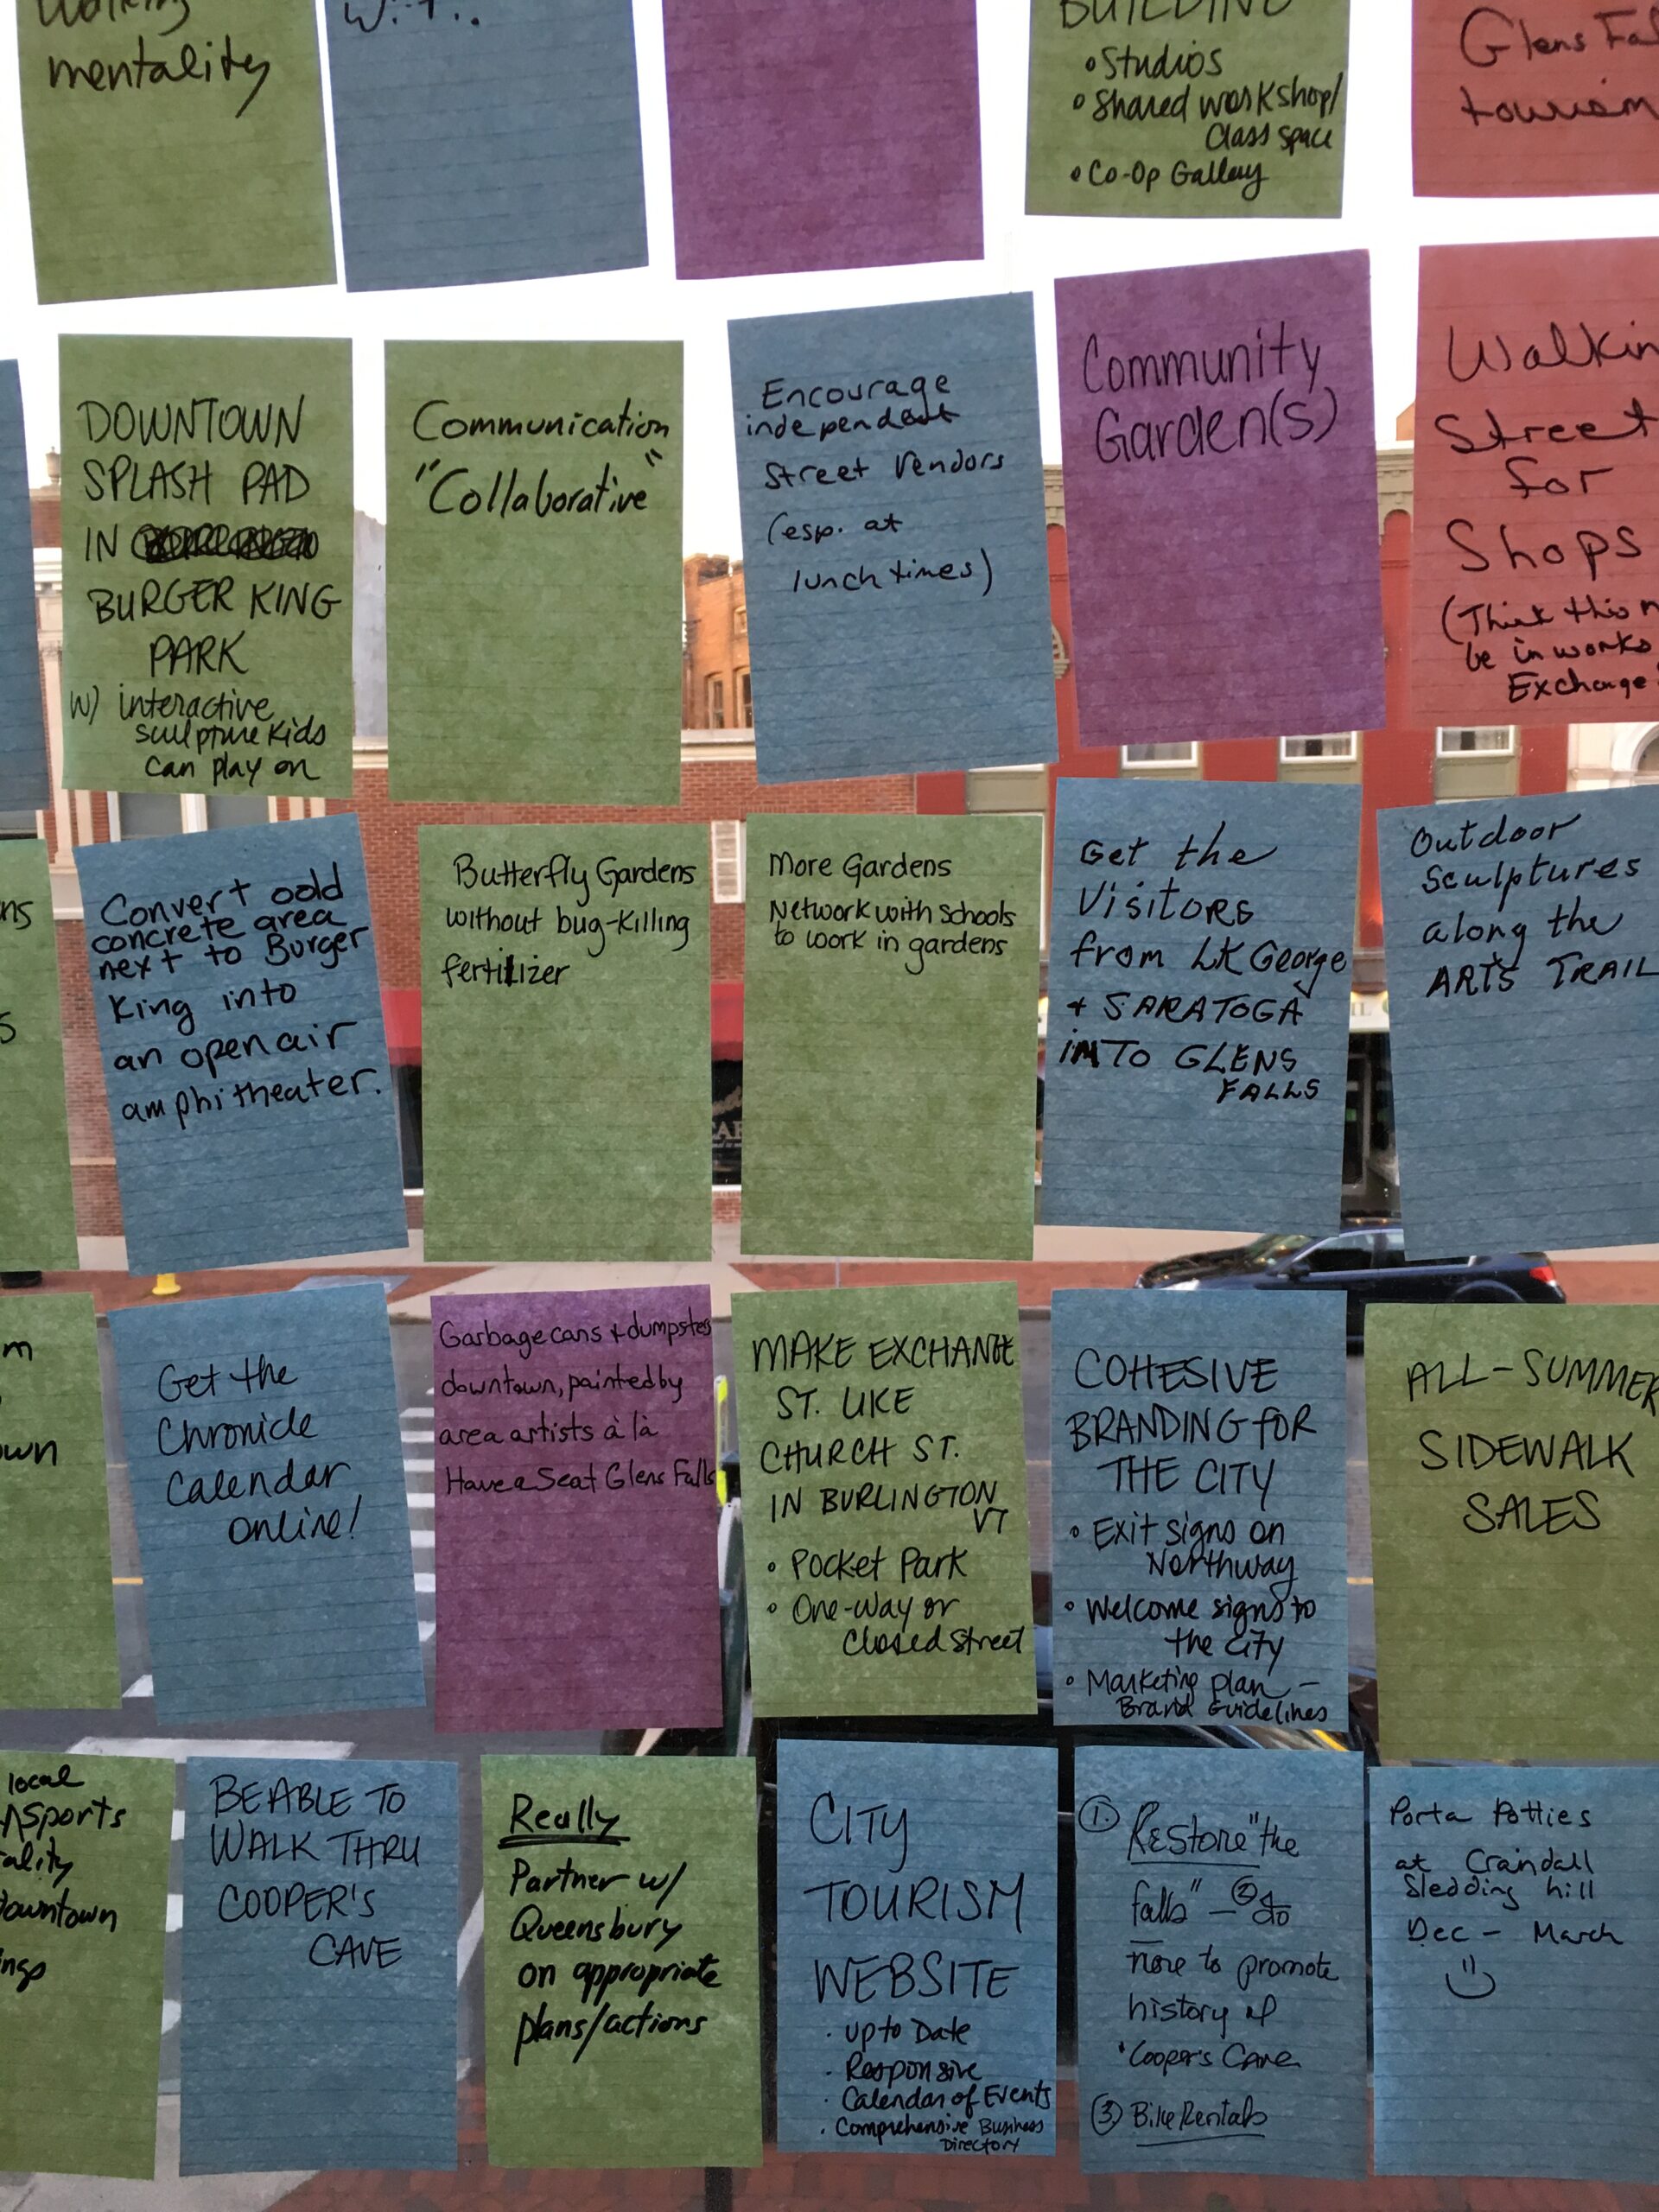 Walking
mentality
BUILDING
• Studios
• Shared workshop/
Class space
• Co-Op Gallery
Glens Fal
tourism
DOWNTOWN
SPLASH PAD
IN
BURGER KING
PARK
W/ interactive
sculpture kids
can play on
Communication
"Collaborative"
Encourage
independent
Street Vendors
(esp. at
lunch times)
Community
Garden(s)
Walkin
Street
for
Shops
(Think this m
be in works
Exchange
ns
s
Convert oold
concrete area
next to Burger
King into
an open air
amphitheater.
Butterfly Gardens
without bug-killing
fertilizer
More Gardens
Network with schools
to work in gardens
Get the
Visitors
from LK George
+ SARATOGA
INTO GLENS
FALLS
Outdoor
Sculptures
along the
ARTS TRAIL
m
own
Get the
Chronicle
Calendar
online!
Garbage cans + dumpsters
downtown, painted by
area artists à là
Have a Seat Glens Falls
MAKE EXCHANGE
ST. LIKE
CHURCH ST.
IN BURLINGTON
VT
• Pocket Park
• One-way or
Closed Street
COHESIVE
BRANDING FOR
THE CITY
• Exit signs on
Northway
• Welcome signs to
the city
• Marketing plan –
Brand Guidelines
ALL-SUMMER
SIDEWALK
SALES
local
Sports
ality
downtown
ngs
BE ABLE TO
WALK THRU
COOPER'S
CAVE
Really
Partner w/
Queensbury
on appropriate
plans/actions
CITY
TOURISM
WEBSITE
· Up to Date
· Responsive
· Calendar of Events
· Comprehensive Business
Directory
① Restore "the
falls" – ② do
more to promote
history of
'Cooper's Cave
③ Bike Rentals
Porta Potties
at Crandall
Sledding hill
Dec – March